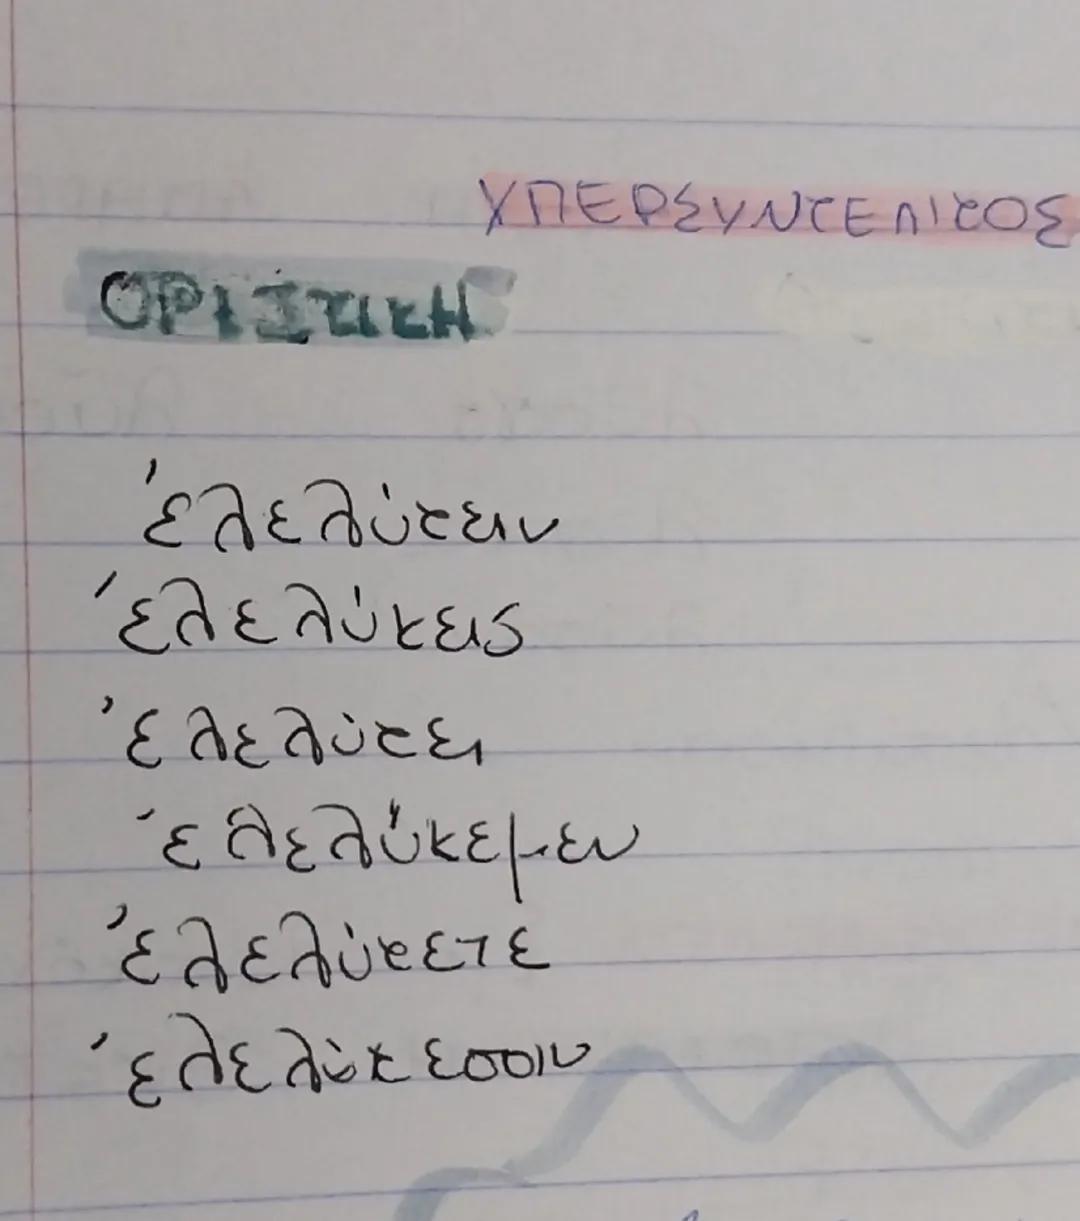 ΥΠΕΡΣΥΝΤΕΛΙΚΟΣ
ΟΡΙΣΤΙΚΗ
ἐλελύκειν
ἐλελύκεις
ἐλελύκει
ἐλελύκεμεν
ἐλελύκετε
ἐλελύκεσσιν